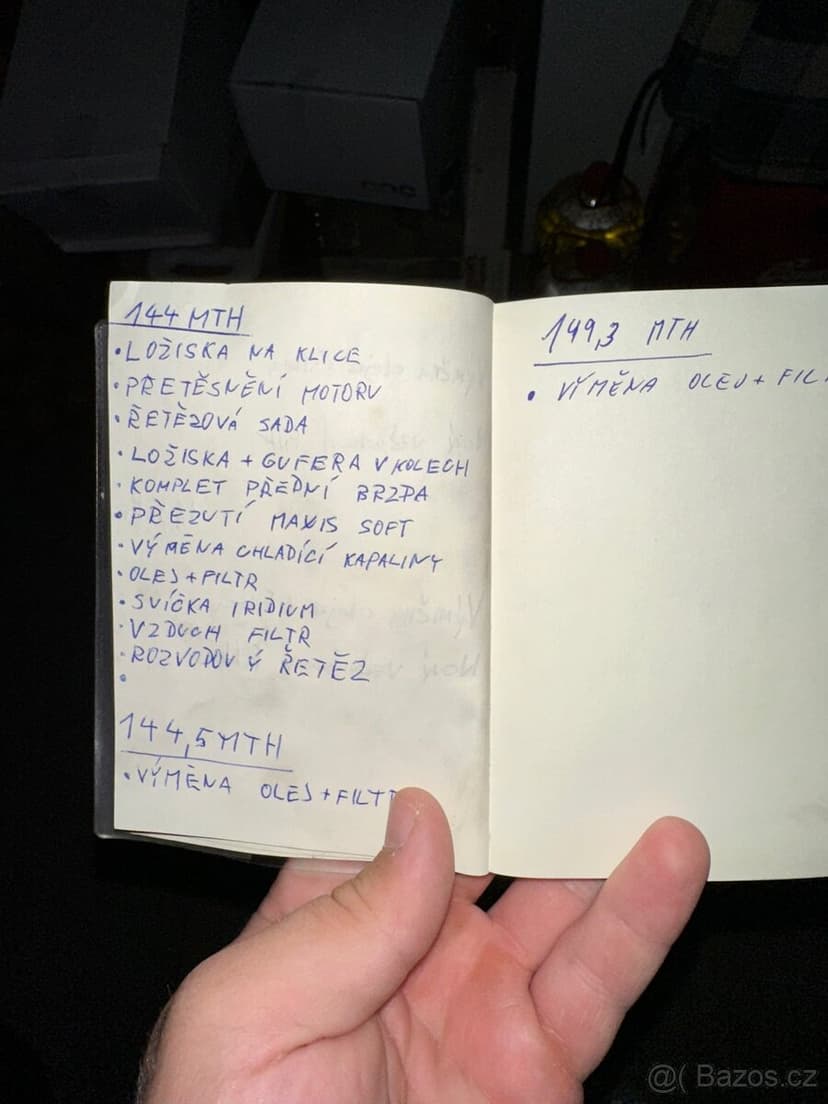 144 MTH
• LOŽISKA NA KLICE
• PŘETĚSNĚNÍ MOTORU
• ŘETĚZOVÁ SADA
• LOŽISKA + GUFERA V KOLECH
• KOMPLET PŘEDNÍ BRZDA
• PŘEZUTÍ MAXIS SOFT
• VÝMĚNA CHLADÍCÍ KAPALINY
• OLEJ + FILTR
• SVÍČKA IRIDIUM
• VZDUCH FILTR
• ROZVODOVÝ ŘETĚZ
•
144,5 MTH
• VÝMĚNA OLEJ + FILT
149,3 MTH
• VÝMĚNA OLEJ + FIL
@( Bazos.cz